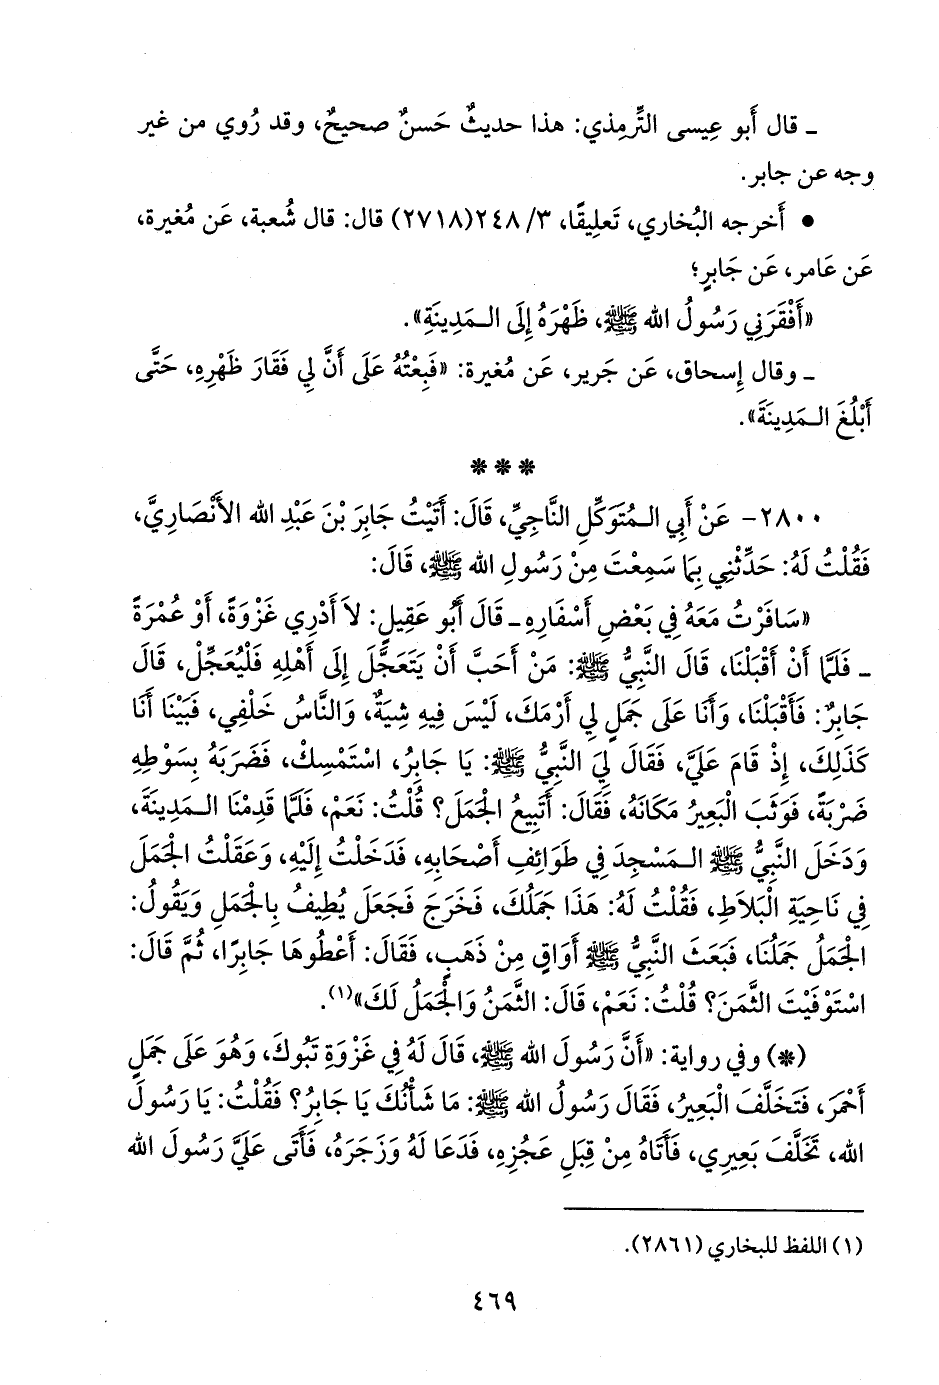 ـ قال أَبو عِيسى التِّرمِذي: هذا حديثٌ حَسنٌ صحيحٌ، وقد رُوي من غير
وجه عن جابر.
• أَخرجه البُخاري، تَعلِيقًا، ٣/ ٢٤٨(٢٧١٨) قال: قال شُعبة، عَن مُغيرة،
عَن عَامر، عَن جَابرٍ؛
«أَفْقَرَنِي رَسُولُ الله ﷺ، ظَهْرَهُ إِلَى الـمَدِينَةِ».
ـ وقال إِسحاق، عَن جَرير، عَن مُغيرة: «فَبِعْتُهُ عَلَى أَنَّ لِي فَقَارَ ظَهْرِهِ، حَتَّى
أَبْلُغَ الـمَدِينَةَ».
* * *
٢٨٠٠- عَنْ أَبِي الـمُتَوَكِّلِ النَّاجِيِّ، قَالَ: أَتَيْتُ جَابِرَ بْنَ عَبْدِ الله الأَنْصَارِيَّ،
فَقُلْتُ لَهُ: حَدِّثْنِي بِمَا سَمِعْتَ مِنْ رَسُولِ الله ﷺ، قَالَ:
«سَافَرْتُ مَعَهُ فِي بَعْضِ أَسْفَارِهِ ـ قَالَ أَبُو عَقِيلٍ: لاَ أَدْرِي غَزْوَةً، أَوْ عُمْرَةً
ـ فَلَمَّا أَنْ أَقْبَلْنَا، قَالَ النَّبِيُّ ﷺ: مَنْ أَحَبَّ أَنْ يَتَعَجَّلَ إِلَى أَهْلِهِ فَلْيُعَجِّلْ، قَالَ
جَابِرٌ: فَأَقْبَلْنَا، وَأَنَا عَلَى جَمَلٍ لِي أَرْمَكَ، لَيْسَ فِيهِ شِيَةٌ، وَالنَّاسُ خَلْفِي، فَبَيْنَا أَنَا
كَذَلِكَ، إِذْ قَامَ عَلَيَّ، فَقَالَ لِيَ النَّبِيُّ ﷺ: يَا جَابِرُ، اسْتَمْسِكْ، فَضَرَبَهُ بِسَوْطِهِ
ضَرْبَةً، فَوَثَبَ الْبَعِيرُ مَكَانَهُ، فَقَالَ: أَتَبِيعُ الْجَمَلَ؟ قُلْتُ: نَعَمْ، فَلَمَّا قَدِمْنَا الـمَدِينَةَ،
وَدَخَلَ النَّبِيُّ ﷺ الـمَسْجِدَ فِي طَوَائِفِ أَصْحَابِهِ، فَدَخَلْتُ إِلَيْهِ، وَعَقَلْتُ الْجَمَلَ
فِي نَاحِيَةِ الْبَلاَطِ، فَقُلْتُ لَهُ: هَذَا جَمَلُكَ، فَخَرَجَ فَجَعَلَ يُطِيفُ بِالْجَمَلِ وَيَقُولُ:
الْجَمَلُ جَمَلُنَا، فَبَعَثَ النَّبِيُّ ﷺ أَوَاقٍ مِنْ ذَهَبٍ، فَقَالَ: أَعْطُوهَا جَابِرًا، ثُمَّ قَالَ:
اسْتَوْفَيْتَ الثَّمَنَ؟ قُلْتُ: نَعَمْ، قَالَ: الثَّمَنُ وَالْجَمَلُ لَكَ»(١).
(*) وفي رواية: «أَنَّ رَسُولَ الله ﷺ، قَالَ لَهُ فِي غَزْوَةِ تَبُوكَ، وَهُوَ عَلَى جَمَلٍ
أَحْمَرَ، فَتَخَلَّفَ الْبَعِيرُ، فَقَالَ رَسُولُ الله ﷺ: مَا شَأْنُكَ يَا جَابِرُ؟ فَقُلْتُ: يَا رَسُولَ
الله، تَخَلَّفَ بَعِيرِي، فَأَتَاهُ مِنْ قِبَلِ عَجُزِهِ، فَدَعَا لَهُ وَزَجَرَهُ، فَأَتَى عَلَيَّ رَسُولَ الله
(١) اللفظ للبخاري (٢٨٦١).
٤٦٩